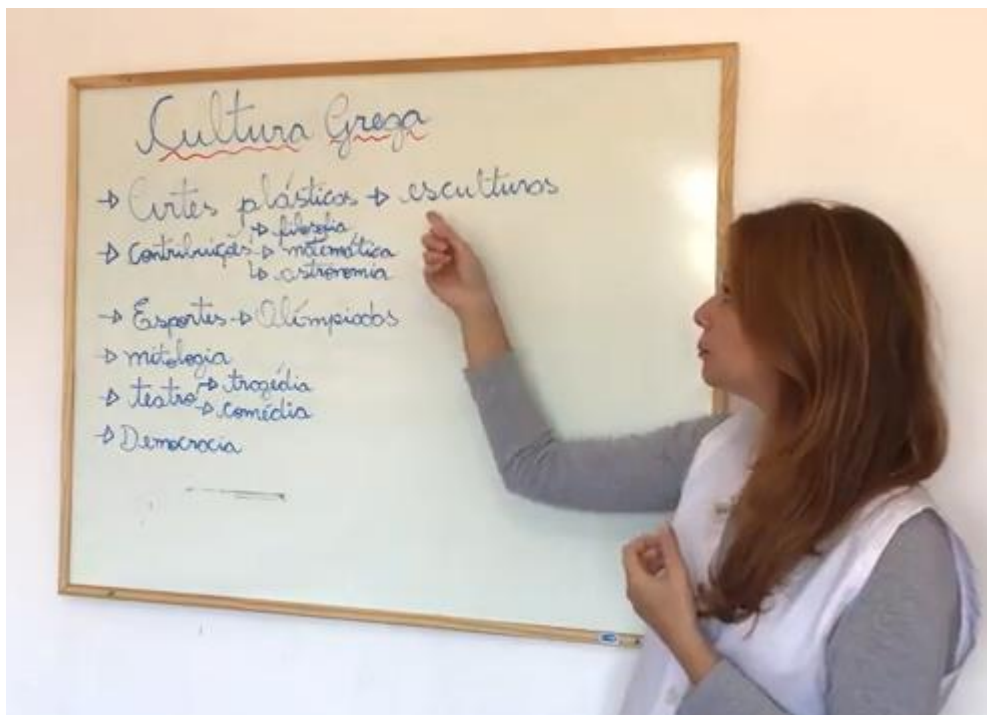 Cultura Grega
→ Artes plásticas → esculturas
→ Contribuições → filosofia
→ matemática
→ astronomia
→ Esportes → Olímpiadas
→ mitologia
→ teatro → tragédia
→ comédia
→ Democracia